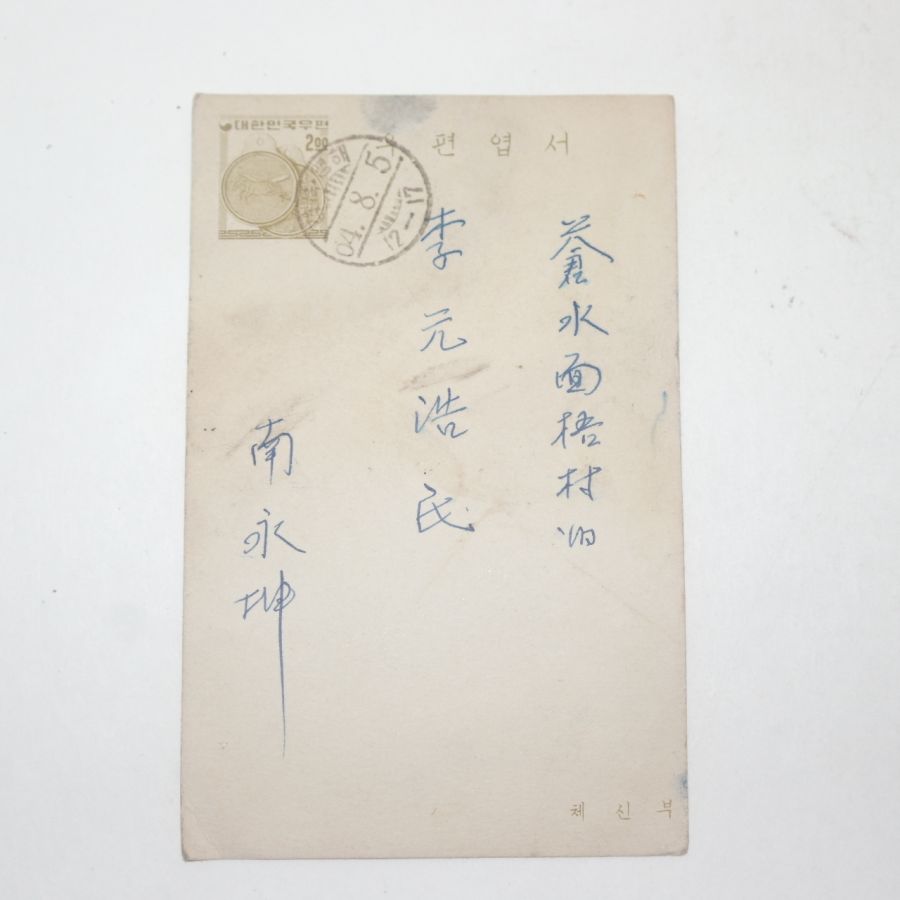 대한민국우편
2.00
우편엽서
64. 8. 5
12-17
蒼水面梧村洞
李元浩氏
南永坤
체신부